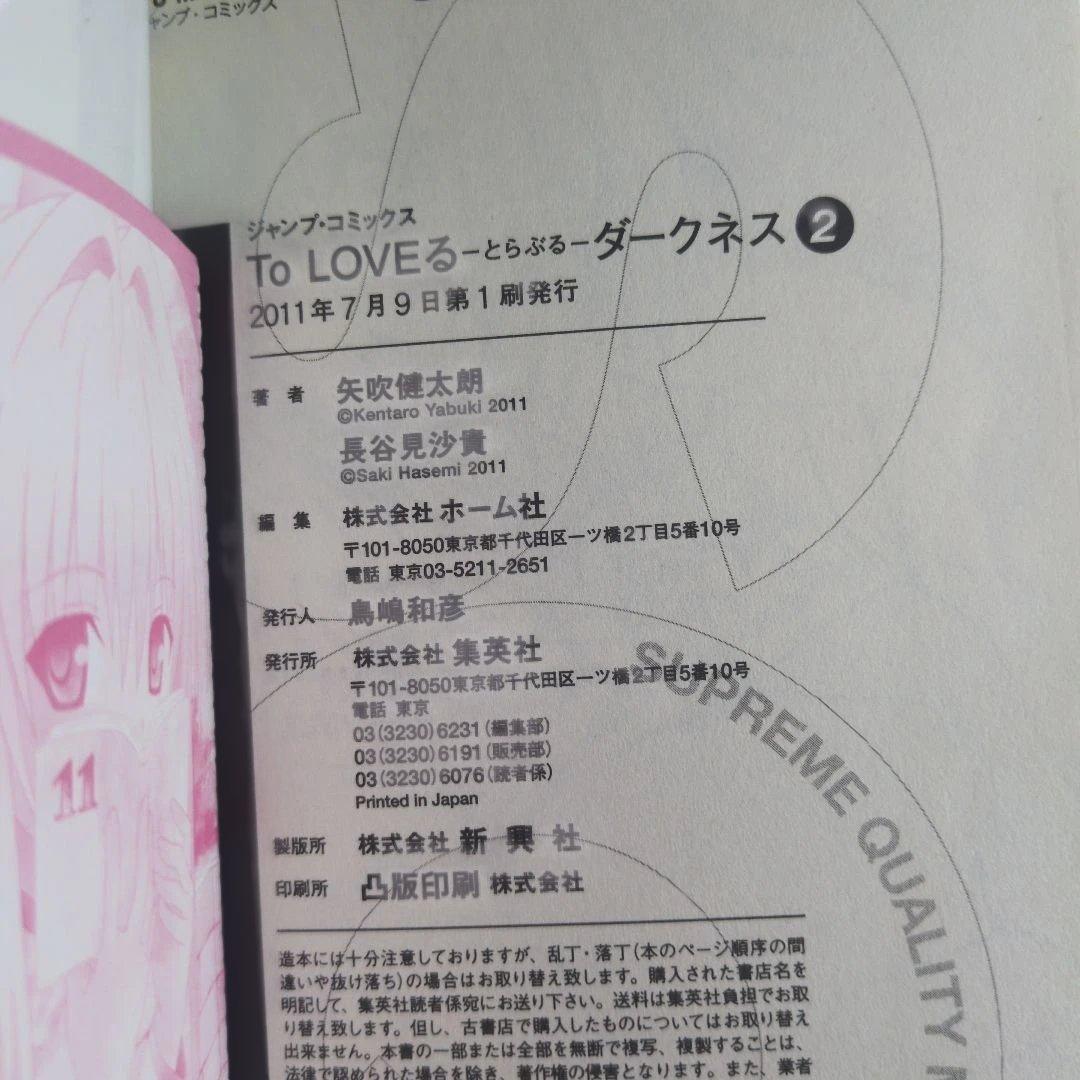 ジャンプ・コミックス
ジャンプ・コミックス
To LOVEる―とらぶる―ダークネス 2
2011年7月9日第1刷発行
著 者 矢吹健太朗
©Kentaro Yabuki 2011
長谷見沙貴
©Saki Hasemi 2011
編 集 株式会社 ホーム社
〒101-8050東京都千代田区一ツ橋2丁目5番10号
電話 東京03-5211-2651
発行人 鳥嶋和彦
発行所 株式会社 集英社
〒101-8050東京都千代田区一ツ橋2丁目5番10号
電話 東京
03(3230)6231(編集部)
03(3230)6191(販売部)
03(3230)6076(読者係)
Printed in Japan
製版所 株式会社 新 興 社
印刷所 凸版印刷 株式会社
造本には十分注意しておりますが、乱丁・落丁(本のページ順序の間
違いや抜け落ち)の場合はお取り替え致します。購入された書店名を
明記して、集英社読者係宛にお送り下さい。送料は集英社負担でお取
り替え致します。但し、古書店で購入したものについてはお取り替え
出来ません。本書の一部または全部を無断で複写、複製することは、
法律で認められた場合を除き、著作権の侵害となります。また、業者
SUPREME QUALITY
11